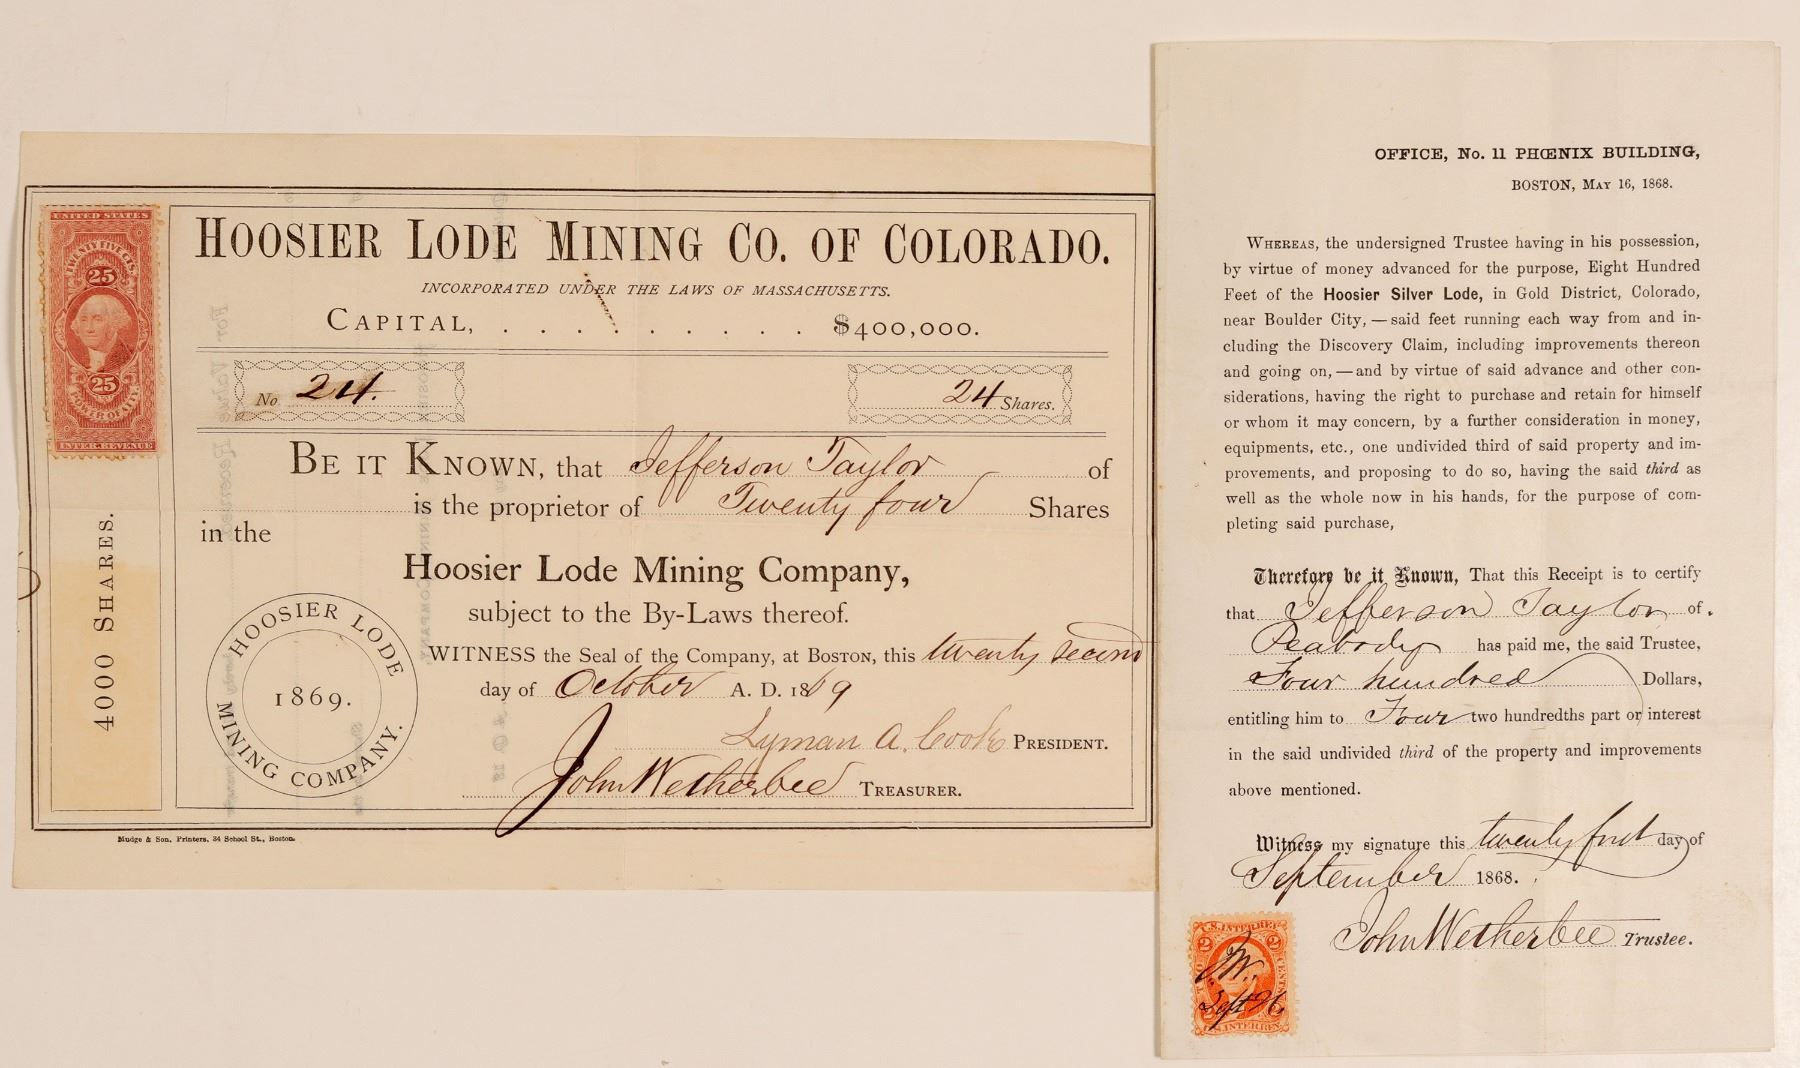 UNITED STATES
TWENTY FIVE CTS.
25
25
POWER OF ATT'Y.
INTER. REVENUE
4000 SHARES.
HOOSIER LODE MINING CO. OF COLORADO.
INCORPORATED UNDER THE LAWS OF MASSACHUSETTS.
CAPITAL, . . . . . . . . . . $400,000.
No 24.
24 Shares.
BE IT KNOWN, that Jefferson Taylor of
is the proprietor of Twenty four Shares
in the
Hoosier Lode Mining Company,
subject to the By-Laws thereof.
HOOSIER LODE
1869.
MINING COMPANY.
WITNESS the Seal of the Company, at BOSTON, this twenty second
day of October A. D. 1869
Lyman A. Cook PRESIDENT.
John Wetherbee TREASURER.
Mudge & Son, Printers, 34 School St., Boston.
OFFICE, No. 11 PHŒNIX BUILDING,
BOSTON, MAY 16, 1868.
WHEREAS, the undersigned Trustee having in his possession,
by virtue of money advanced for the purpose, Eight Hundred
Feet of the Hoosier Silver Lode, in Gold District, Colorado,
near Boulder City, — said feet running each way from and in-
cluding the Discovery Claim, including improvements thereon
and going on, — and by virtue of said advance and other con-
siderations, having the right to purchase and retain for himself
or whom it may concern, by a further consideration in money,
equipments, etc., one undivided third of said property and im-
provements, and proposing to do so, having the said third as
well as the whole now in his hands, for the purpose of com-
pleting said purchase,
Therefore be it Known, That this Receipt is to certify
that Jefferson Taylor of
Peabody has paid me, the said Trustee,
Four hundred Dollars,
entitling him to Four two hundredths part or interest
in the said undivided third of the property and improvements
above mentioned.
Witness my signature this twenty first day of
September 1868.
John Wetherbee Trustee.
U.S. INTER. REV.
2 2
TWO CENTS
J.W.
Sept
U.S. INTER. REV.